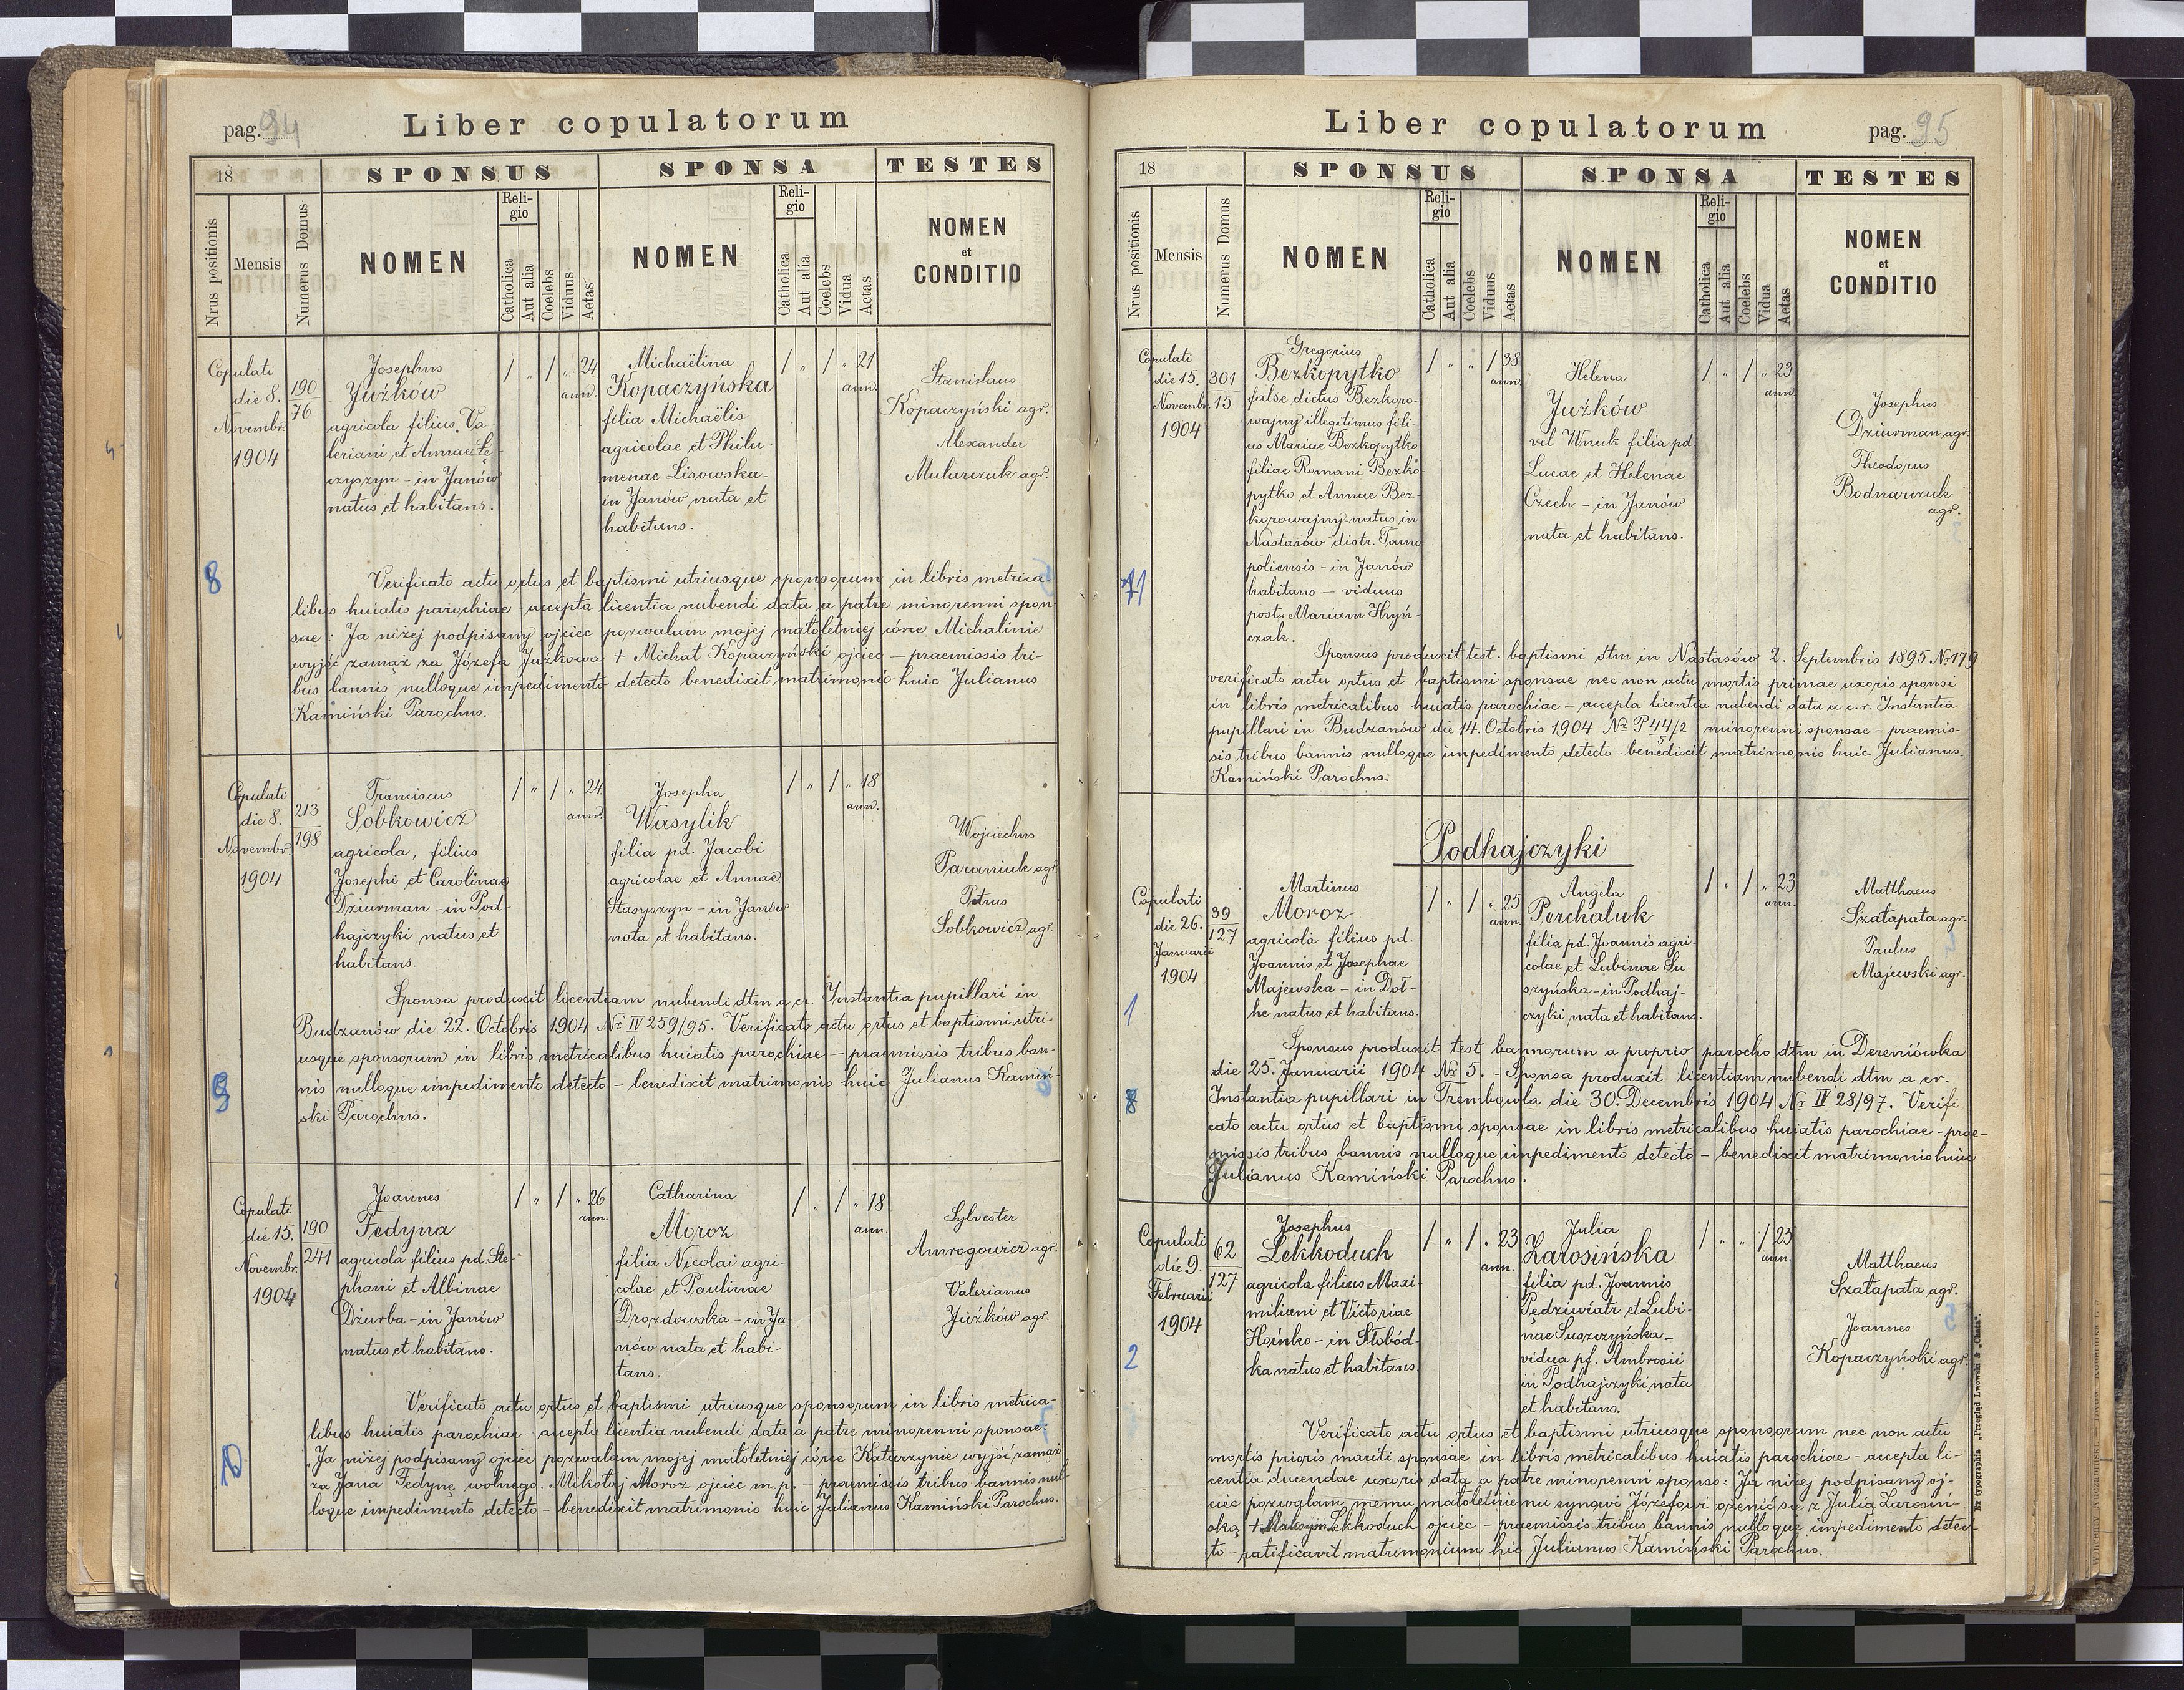 pag. 94
Liber copulatorum
18
SPONSUS
SPONSA
TESTES
Nrus positionis
Mensis
Numerus Domus
NOMEN
Religio
Catholica
Aut alia
Coelebs
Viduus
Aetas
NOMEN
Religio
Catholica
Aut alia
Coelebs
Vidua
Aetas
NOMEN
et
CONDITIO
8
Copulati
die 8.
Novembr.
1904
190
76
Josephus
Jużków
agricola filius Va-
leriani et Annae Le-
czyszyn - in Janów
natus et habitans.
/ „ / „ 24
ann.
Michaëlina
Kopaczyńska
filia Michaëlis
agricolae et Philu-
menae Lisowska-
in Janów nata et
habitans.
/ „ / „ 21
ann.
Stanislaus
Kopaczyński agr.
Alexander
Mularczuk agr.
Verificato actu ortus et baptismi utriusque sponsorum in libris metrica
libus huiatis parochiae - accepta licentia nubendi data a patre minorenni spon
sae: Ja niżej podpisany ojciec pozwalam mojej małoletniej córce Michalinie
wyjść zamąż za Józefa Jużkowa + Michał Kopaczyński ojciec - praemissis tri-
bus bannis nulloque impedimento detecto benedixit matrimonio huic Julianus
Kamiński Parochus.
9
Copulati
die 8.
Novembr.
1904
213
198
Franciscus
Sobkowicz
agricola, filius
Josephi et Carolinae
Dziurman - in Pod-
hajczyki natus et
habitans.
/ „ / „ 24
ann.
Josepha
Wasylik
filia pd. Jacobi
agricolae et Annae
Stasyszyn - in Janów
nata et habitans.
/ „ / „ 18
ann.
Wojciechus
Paraniuk agr.
Petrus
Sobkowicz agr.
Sponsa produxit licentiam nubendi dtm a cr. Instantia pupillari in
Budzanów die 22. Octobris 1904 Nr. IV 259/95. Verificato actu ortus et baptismi utri-
usque sponsorum in libris metricalibus huiatis parochiae - praemissis tribus ban-
nis nulloque impedimento detecto - benedixit matrimonio huic Julianus Kamiń-
ski Parochus.
10
Copulati
die 15.
Novembr.
1904
190
241
Joannes
Fedyna
agricola filius pd. Ste-
phani et Albinae
Dziurba - in Janów
natus et habitans.
/ „ / „ 26
ann.
Catharina
Moroz
filia Nicolai agri-
colae et Paulinae
Drozdowska - in Ja
nów nata et habi-
tans.
/ „ / „ 18
ann.
Sylvester
Amrogowicz agr.
Valerianus
Jużków agr.
Verificato actu ortus et baptismi utriusque sponsorum in libris metrica-
libus huiatis parochiae - accepta licentia nubendi data a patre minorenni sponsae:
„Ja niżej podpisany ojciec pozwalam mojej małoletniej córce Katarzynie wyjść zamąż
za Jana Fedynę wolnego. Mikołaj Moroz ojciec m.p. - praemissis tribus bannis nul-
loque impedimento detecto - benedixit matrimonio huic Julianus Kamiński Parochus.
Liber copulatorum
pag. 95
18
SPONSUS
SPONSA
TESTES
Nrus positionis
Mensis
Numerus Domus
NOMEN
Religio
Catholica
Aut alia
Coelebs
Viduus
Aetas
NOMEN
Religio
Catholica
Aut alia
Coelebs
Vidua
Aetas
NOMEN
et
CONDITIO
11
Copulati
die 15.
Novembr.
1904
301
15
Gregorius
Bezkopytko
false dictus Bezkoro-
wajny illegitimus fili-
us Mariae Bezkopytko
filiae Romani Bezko
pytko et Annae Bez-
korowajny natus in
Nastasów distr. Tarno
poliensis - in Janów
habitans - viduus
post Mariam Hryń-
czak.
/ „ „ / 38
ann.
Helena
Jużków
vel Wnuk filia pd.
Lucae et Helenae
Czech - in Janów
nata et habitans.
/ „ / „ 23
ann.
Josephus
Dziurman agr.
Theodorus
Bodnarczuk
agr.
Sponsus produxit test. baptismi dtm in Nastasów 2. Septembris 1895 Nr. 179
verificato actu ortus et baptismi sponsae nec non actu mortis primae uxoris sponsi
in libris metricalibus huiatis parochiae - accepta licentia nubendi data a c. r. Instantia
pupillari in Budzanów die 14. Octobris 1904 Nr. P 44/2 minorenni sponsae - praemis-
5
sis tribus bannis nulloque impedimento detecto - benedixit matrimonio huic Julianus
Kamiński Parochus.
Podhajczyki
1
8
Copulati
die 26.
Januarii
1904
39
127
Martinus
Moroz
agricola filius pd.
Joannis et Josephae
Majewska - in Doł-
he natus et habitans.
/ „ / „ 25
ann.
Angela
Perchaluk
filia pd. Joannis agri-
colae et Lubinae Su-
szyńska - in Podhaj-
czyki nata et habitans.
/ „ / „ 23
ann.
Matthaeus
Szałapata agr.
Paulus
Majewski agr.
Sponsus produxit test bannorum a proprio parocho dtm in Dereniówka
die 25. Januarii 1904 Nr. 5. - Sponsa produxit licentiam nubendi dtm a cr.
Instantia pupillari in Trembowla die 30. Decembris 1904 Nr. IV 28/97. Verifi
cato actu ortus et baptismi sponsae in libris metricalibus huiatis parochiae - prae-
missis tribus bannis nulloque impedimento detecto - benedixit matrimonio huic
Julianus Kamiński Parochus.
2
Copulati
die 9.
Februarii
1904
62
127
Josephus
Lekkoduch
agricola filius Maxi-
miliani et Victoriae
Hoinko - in Słobód-
ka natus et habitans.
/ „ / „ 23
ann.
Julia
Zarosińska
filia pd. Joannis
Pędziwiatr et Lubi-
nae Suszczyńska -
vidua pf. Ambrosii
in Podhajczyki nata
et habitans.
/ „ „ / 25
ann.
Matthaeus
Szałapata agr.
Joannes
Kopaczyński agr.
Verificato actu ortus et baptismi utriusque sponsorum nec non actu
mortis prioris mariti sponsae in libris metricalibus huiatis parochiae - accepta li-
centia ducendae uxoris data a patre minorenni sponso: Ja niżej podpisany oj-
ciec pozwalam memu małoletniemu synowi Józefowi ożenić się z Julią Zarosiń-
ską + Maksym Lekkoduch ojciec - praemissis tribus bannis nulloque impedimento detec-
to - ratificavit matrimonium hic Julianus Kamiński Parochus.
Ex typographia „Przegląd Lwowski" & „Chaes".